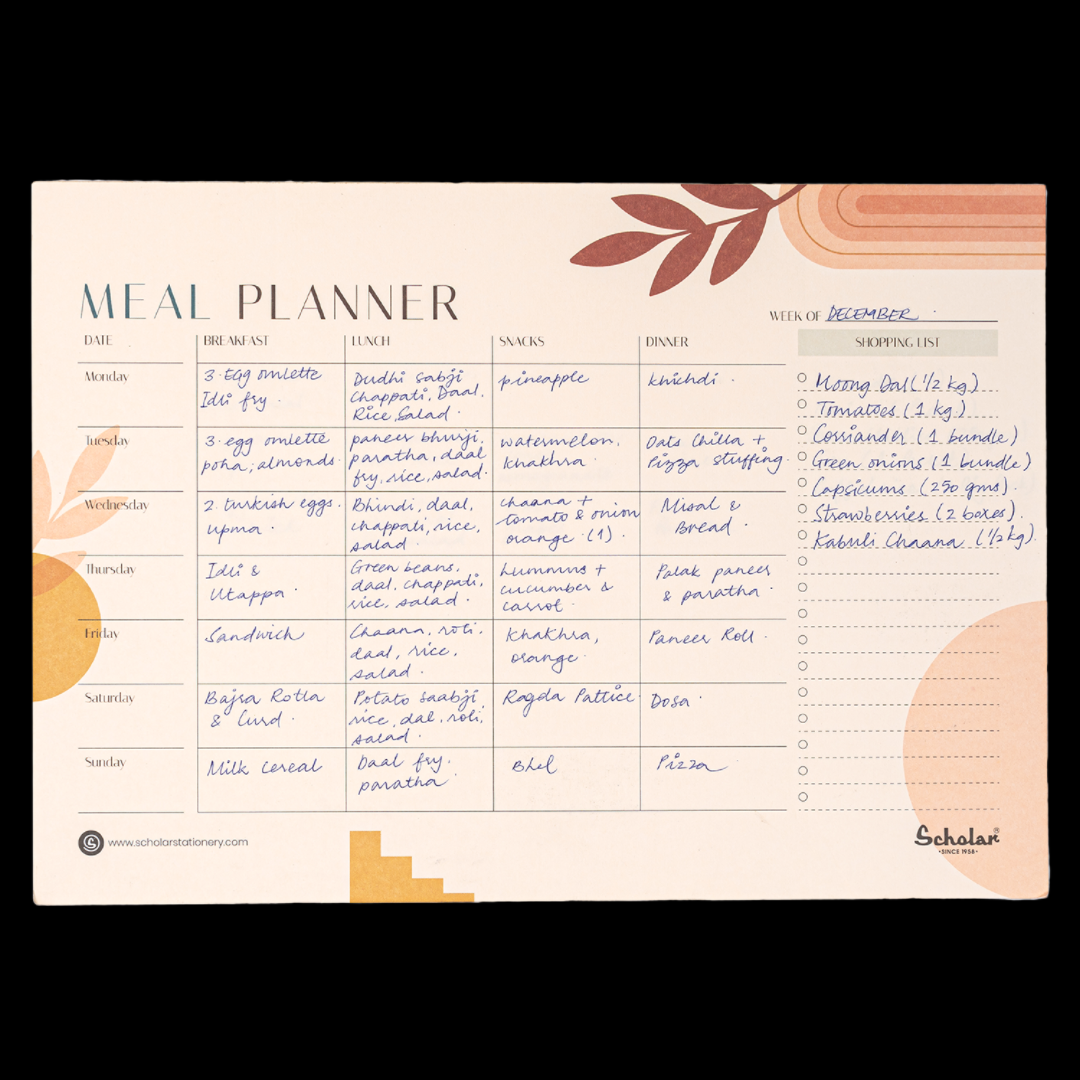 MEAL PLANNER
WEEK OF DECEMBER
DATE BREAKFAST LUNCH SNACKS DINNER SHOPPING LIST
Monday
3. Egg omlette
Idli fry.
Dudhi sabji
Chappati, Daal.
Rice, Salad.
pineapple
khichdi.
Tuesday
3. egg omlette
poha, almonds.
paneer bhurji,
paratha, daal
fry, rice, salad.
watermelon,
khakhra.
Oats Chilla +
Pizza stuffing.
Wednesday
2. turkish eggs.
upma.
Bhindi, daal,
chappati, rice,
salad.
chaana +
tomato & onion
orange (1).
Misal &
Bread.
Thursday
Idli &
Utappa.
Green beans,
daal, chappati,
rice, salad.
hummus +
cucumber &
carrot.
Palak paneer
& paratha.
Friday
Sandwich
Chaana, roti,
daal, rice,
salad.
Khakhra,
orange.
Paneer Roll.
Saturday
Bajra Rotla
& Curd.
Potato saabji
rice, dal, roti,
salad.
Ragda Pattice.
Dosa.
Sunday
Milk Cereal
Daal fry.
paratha.
Bhel
Pizza
Moong Dal (1/2 kg)
Tomatoes (1 kg)
Corriander (1 bundle)
Green onions (1 bundle)
Capsicums (250 gms).
Strawberries (2 boxes).
Kabuli Chaana (1/2 kg).
www.scholarstationery.com
Scholar®
•SINCE 1956•